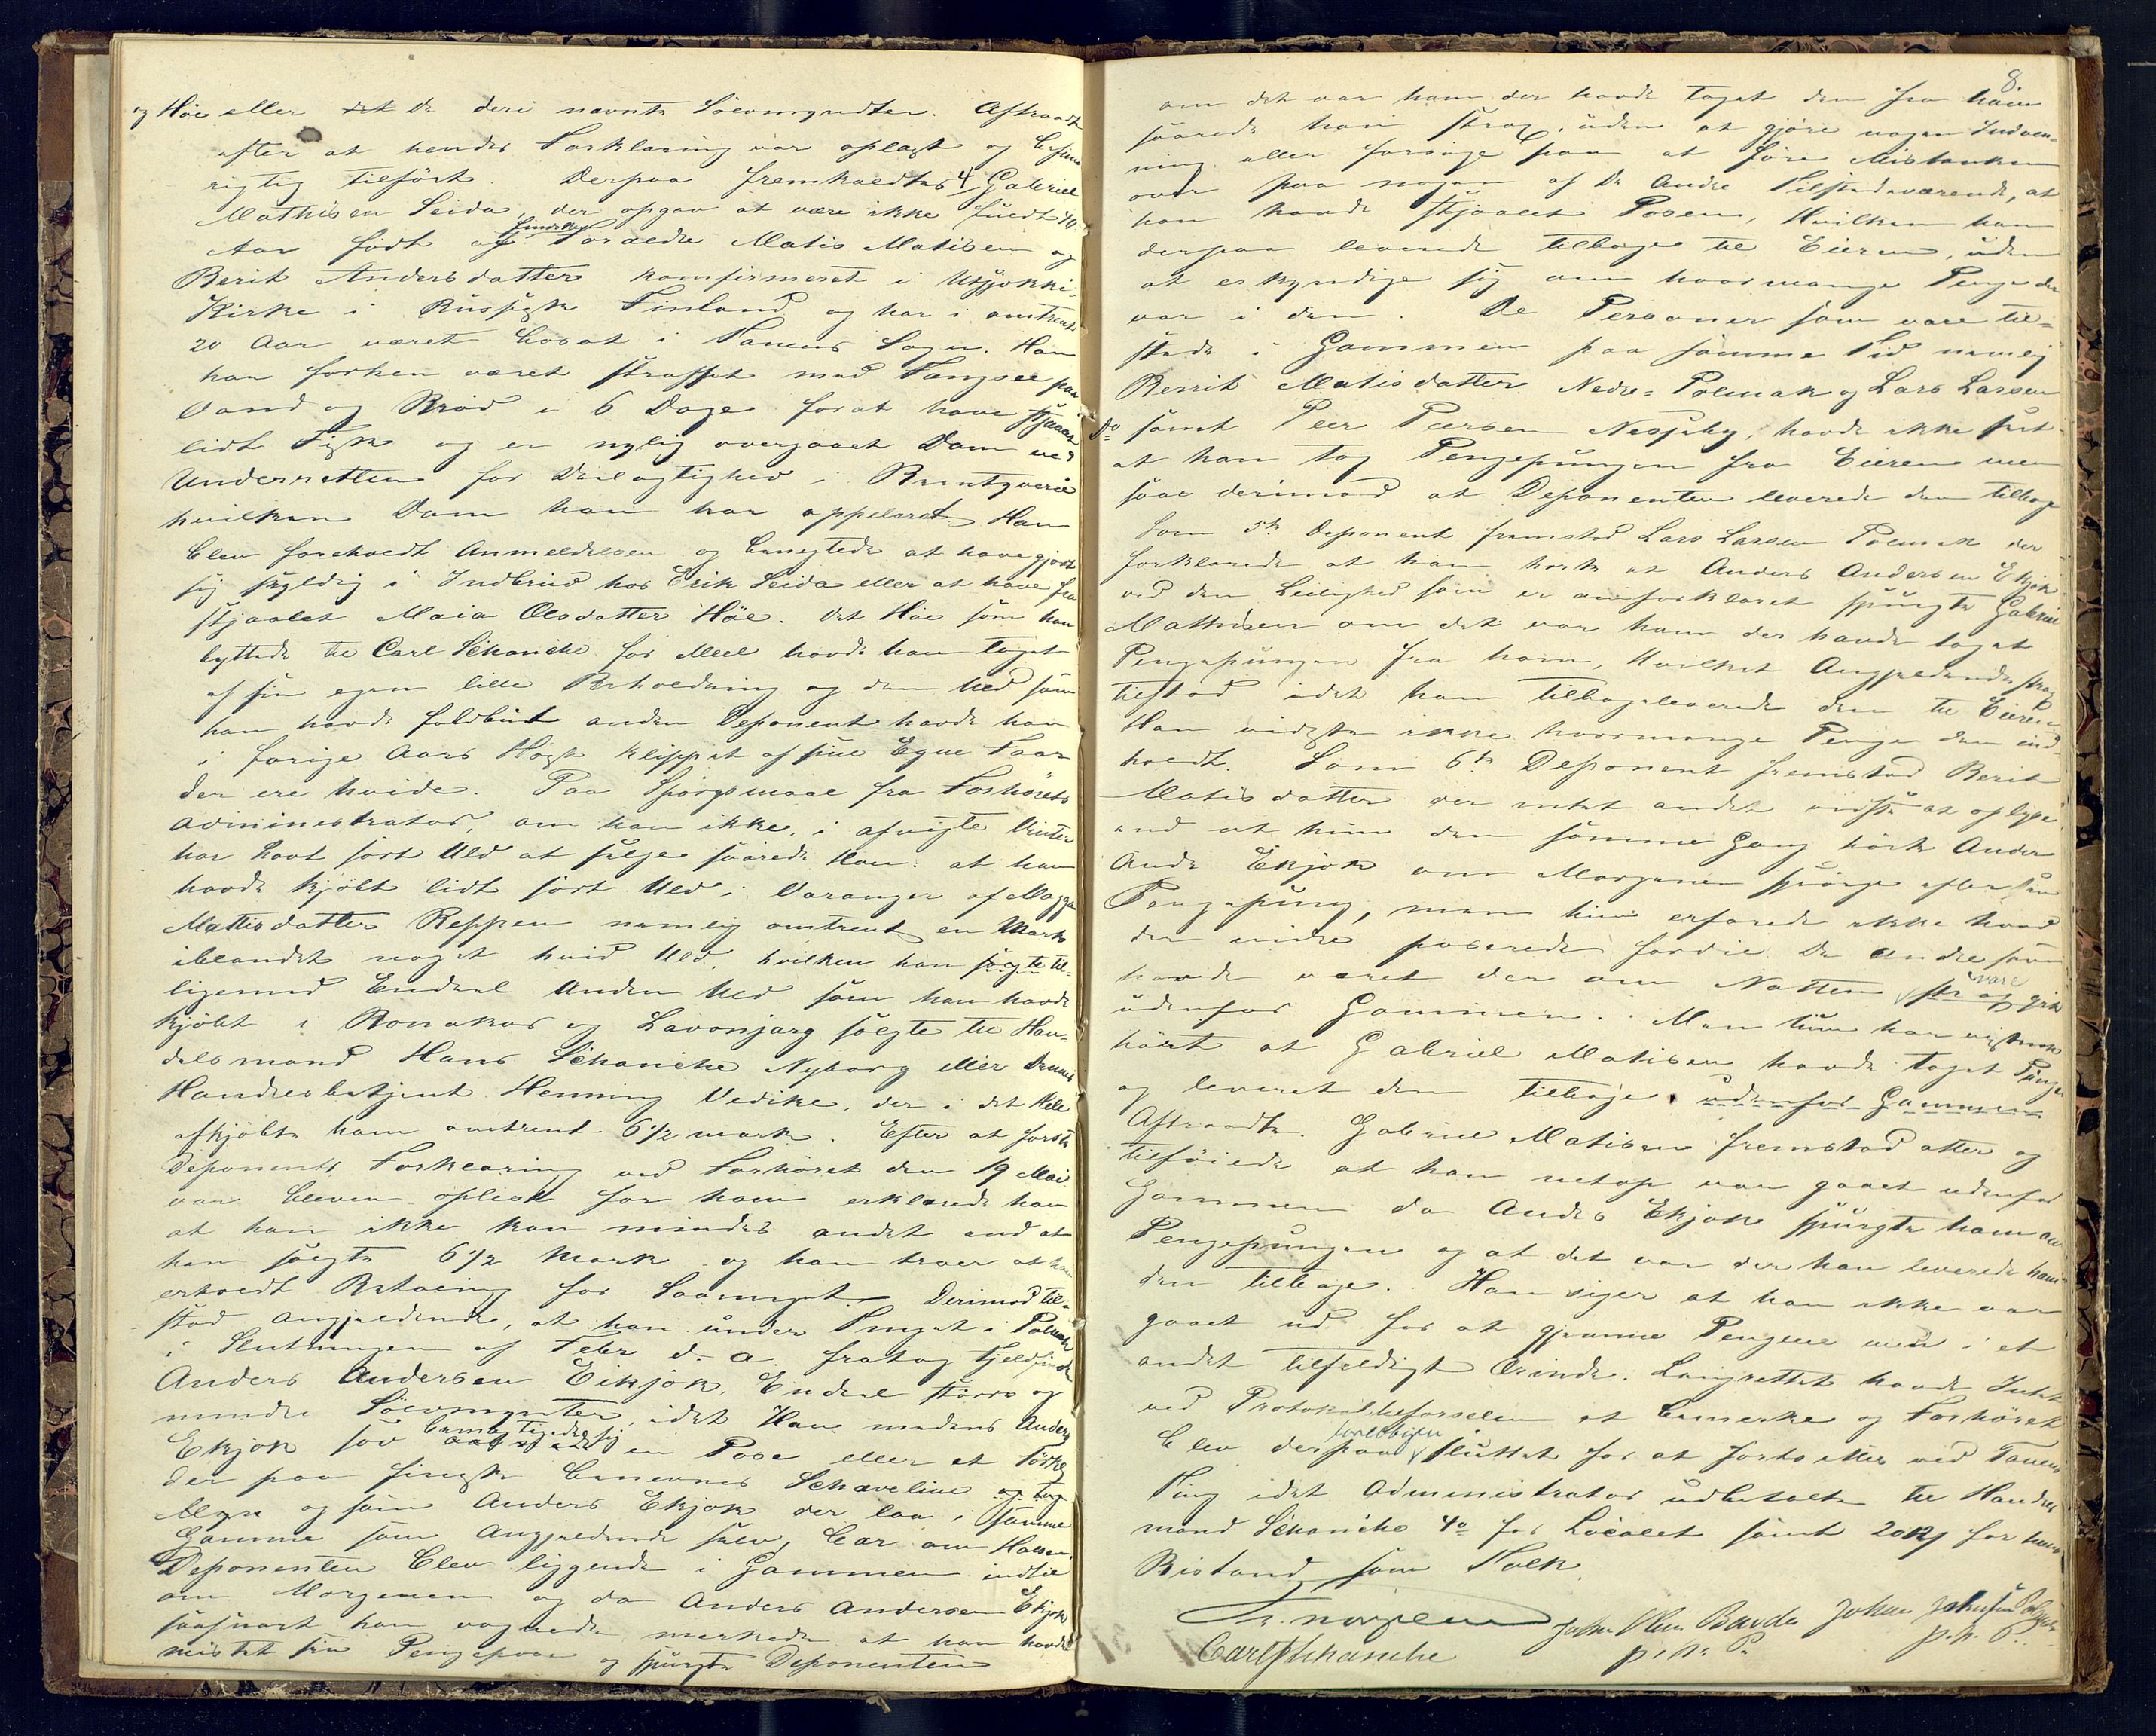 og Höe eller det De deri nævnte Sövmyndter. Aftraadt
efter at hendes Forklaring var oplæst og
rigtig tilfört. Derpaa fremkaldtes 4 Gabriel
Mathisen Seida, der opgav at være ikke fuldt 40
Aar födt af Finske Forældre Matis Matisen og
Berit Andersdatter konfirmeret i Utsjokki-
Kirke i Russisk Finland og har i omtrent
20 Aar været bosat i Tanens Sogn. Han
har forhen været straffet med Fængsel paa
Vand og Bröd i 6 Dage forat have stjaalet
lidt Fisk og er nylig overgaaet Dom ved
Underretten for Delagtighed i Rentyverie
hvilken Dom han har appeleret. Han
blev foreholdt Anmeldelsen og benegtede at have gjort
sig skyldig i Indbrud hos Erik Seida eller at have fra
stjaalet Maia Olsdatter Höe. Det Höe som han
byttede til Carl Schanche for Meel havde han taget
af sin egen lille Beholdning og den Uld som
han havde falbudt anden Deponent havde han
i forige Aars Höst klippet af sine Egne Faar
der ere hvide. Paa Spörgsmaal fra Forhörets
Administrator, om han ikke, i afvigte Vinter
har havt sort Uld at sælge svarede Han: at han
havde kjöbt lidt sort Uld i Varanger af Magga
Mattisdatter Reppen nemlig omtrent en Mark
iblandet noget hvid Uld, hvilken han solgte til-
ligemed Endeel Anden Uld som han havde
kjöbt i Bonakas og Lavonjarg solgte til Han-
delsmand Hans Schanche Nyborg eller dennes
Handelsbetjent Henning Vedike, der i det Hele
afkjöbte ham omtrent 6 1/2 mark. Efter at förste
Deponents Forklaring ved Forhöret den 19 Mai
var bleven oplæst for ham erklærede han
at han ikke kan mindes andet end at
han solgte 6 1/2 Mark og han troer at han
erholdt Betaling for Saameget. Derimod til-
stod angjældende, at han under Tinget i Polmak
i Slutningen af Febr d. a. fratog Fjeldfin
Anders Andersen Eikjok, Endeel större og
mindre Sölvmynter, idet Han medens Anders
Ekjok sov bemægtigede sig en Pose eller et Törklæ
der paa finske benevnes Schaveline og tog
og som Anders Ekjok der laa i samme
Gamme som Angjældende selv, bar om Halsen.
Deponenten blev liggende i Gammen indtil
om Morgenen og da Anders Andersen Ekjok
saasnart han vognede merkede at han havde
mistet sin Pengepose og spurgte Deponenten
8.
om det var ham der havde taget den fra ham
svarede han strax, uden at gjöre nogen Indven-
ning eller forsöge paa at före Mistanken
over paa nogen af De Andre Tilstedeværende, at
han havde stjaalet Posen, Hvilken han
derpaa leverede tilbage til Eieren, uden
at erkyndige sig om hvormange Penge der
var i den. De Personer som vare til-
stede i Gammen paa samme Tid nemlig
Berit Matisdatter Nedre-Polmak og Lars Larsen
do samt Peer Peersen Nesseby, havde ikke seet
at han tog Pengepungen fra Eieren men
saae derimod at Deponenten leverede den tilbage
Som 5te Deponent fremstod Lars Larsen Polmak der
forklarede at han hörte at Anders Andersen Ekjok
ved den Leilighed som er omforklaret spurgte Gabriel
Mathisen om det var ham der havde taget
Pengepungen fra ham, Hvilket Angjældende strax
tilstod idet han tilbageleverede den til Eieren
Han vidste ikke hvormange Penge den ind-
holdt. Som 6te Deponent fremstod Berit
Matisdatter der intet andet vidste at oplyse
end at hun den samme Gang hörte Anders
Ands Ekjok om Morgenen spörge efter sin
Pengepung, men hun erfarede ikke hvad
der videre passerede fordi De Andre som
havde været der om Natten vare gik
udenfor Gammen. Men hun har vistnok
hört at Gabriel Matisen havde taget Pungen
og leveret den tilbage. udenfor Gammen
Aftraadte. Gabriel Matisen fremstod atter og
tilföiede at han netop var gaaet udenfor
Gammen da Anders Ekjok spurgte ham om
Pengepungen og at det var der han leverede ham
den tilbage. Han siger at han ikke var
gaaet ud for at gjemme Pengene men i et
andet tilfældigt Ærinde. Laugrettet havde Intet
ved Protokolbeförselen at bemerke og Forhöret
blev derpaa forelöbigen sluttet for at fortsættes ved Tanens
Ting idet Administrator udbetalte til Handels
mand Schanche 40 for Localet samt 20 for hans
Bistand som Tolk.
Johan Olsen Bavda
Carl Schanche
p. h. P.
p. h. P.